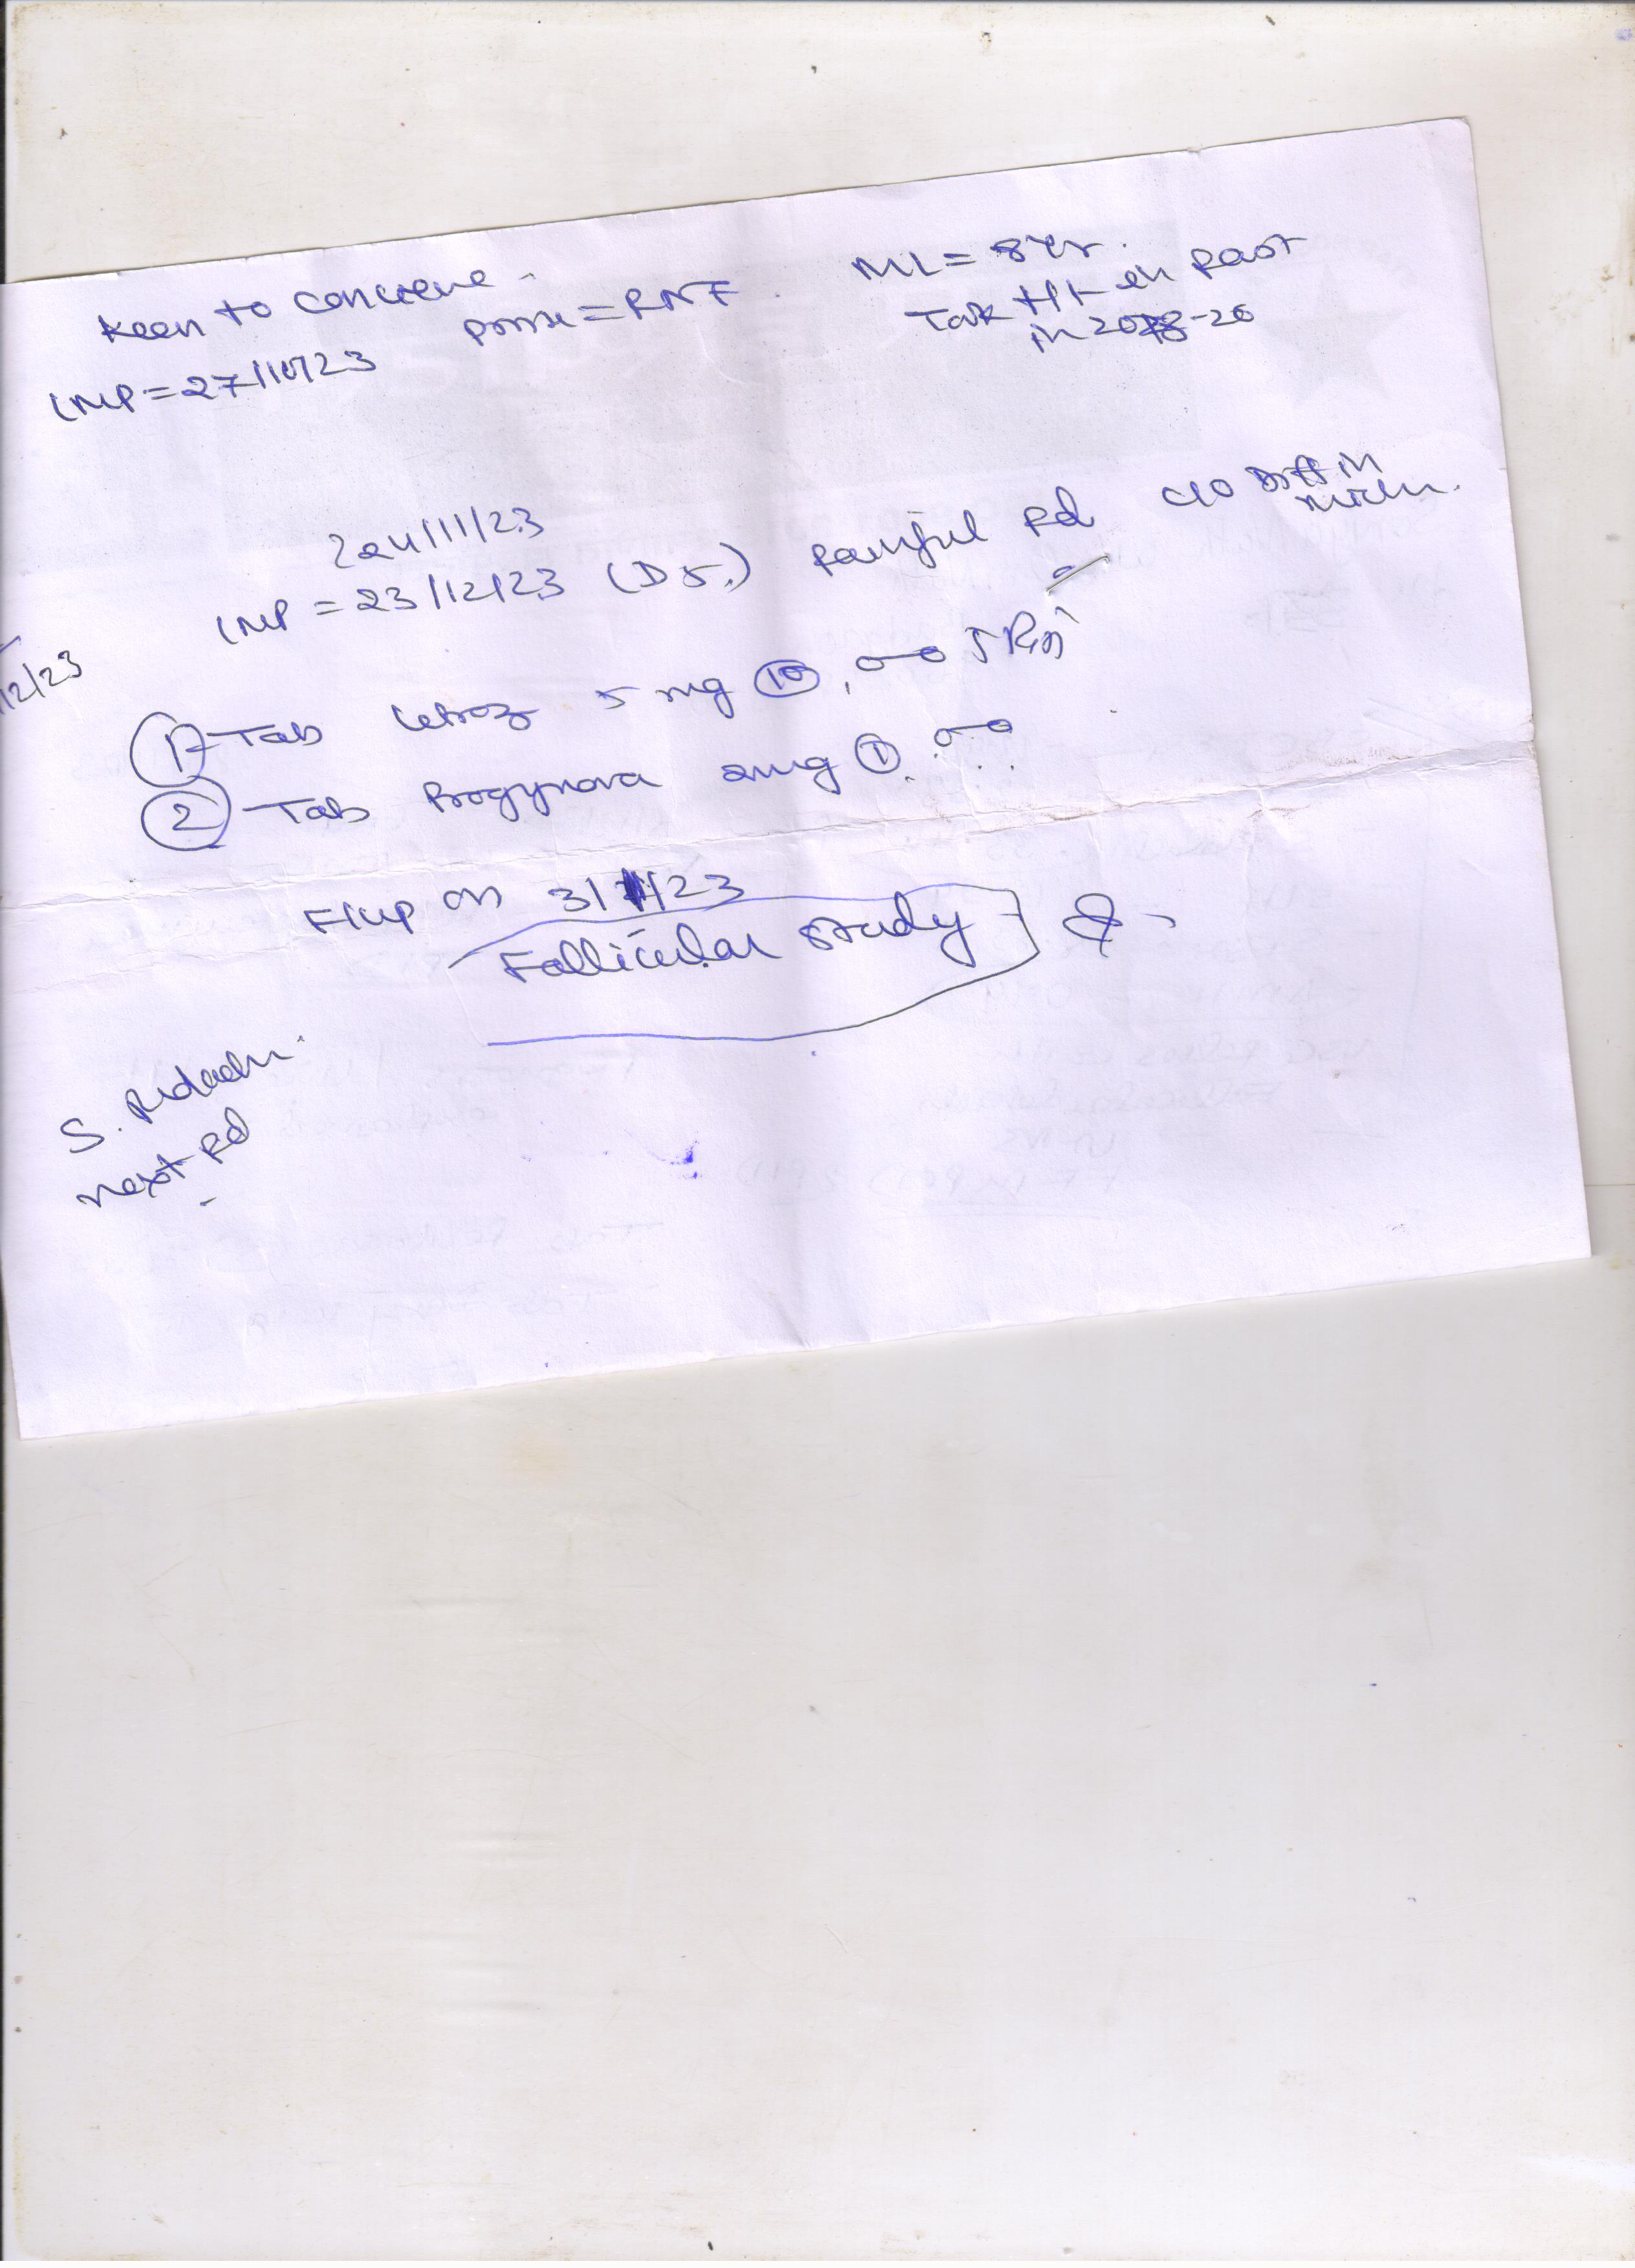 Keen to conceive.
ML = 8 Yr.
PMH = RNF.
LMP = 27/10/23
in past
in 2018-20
24/11/23
LMP = 23/12/23 (D5.) Painful Pd C/O Diff in
12/23
① Tab Letroz 5 mg ⑩, o—o
② Tab Progynova 2mg ① o—o
F/up on 3/1/23
Follicular study
S.
next Pd